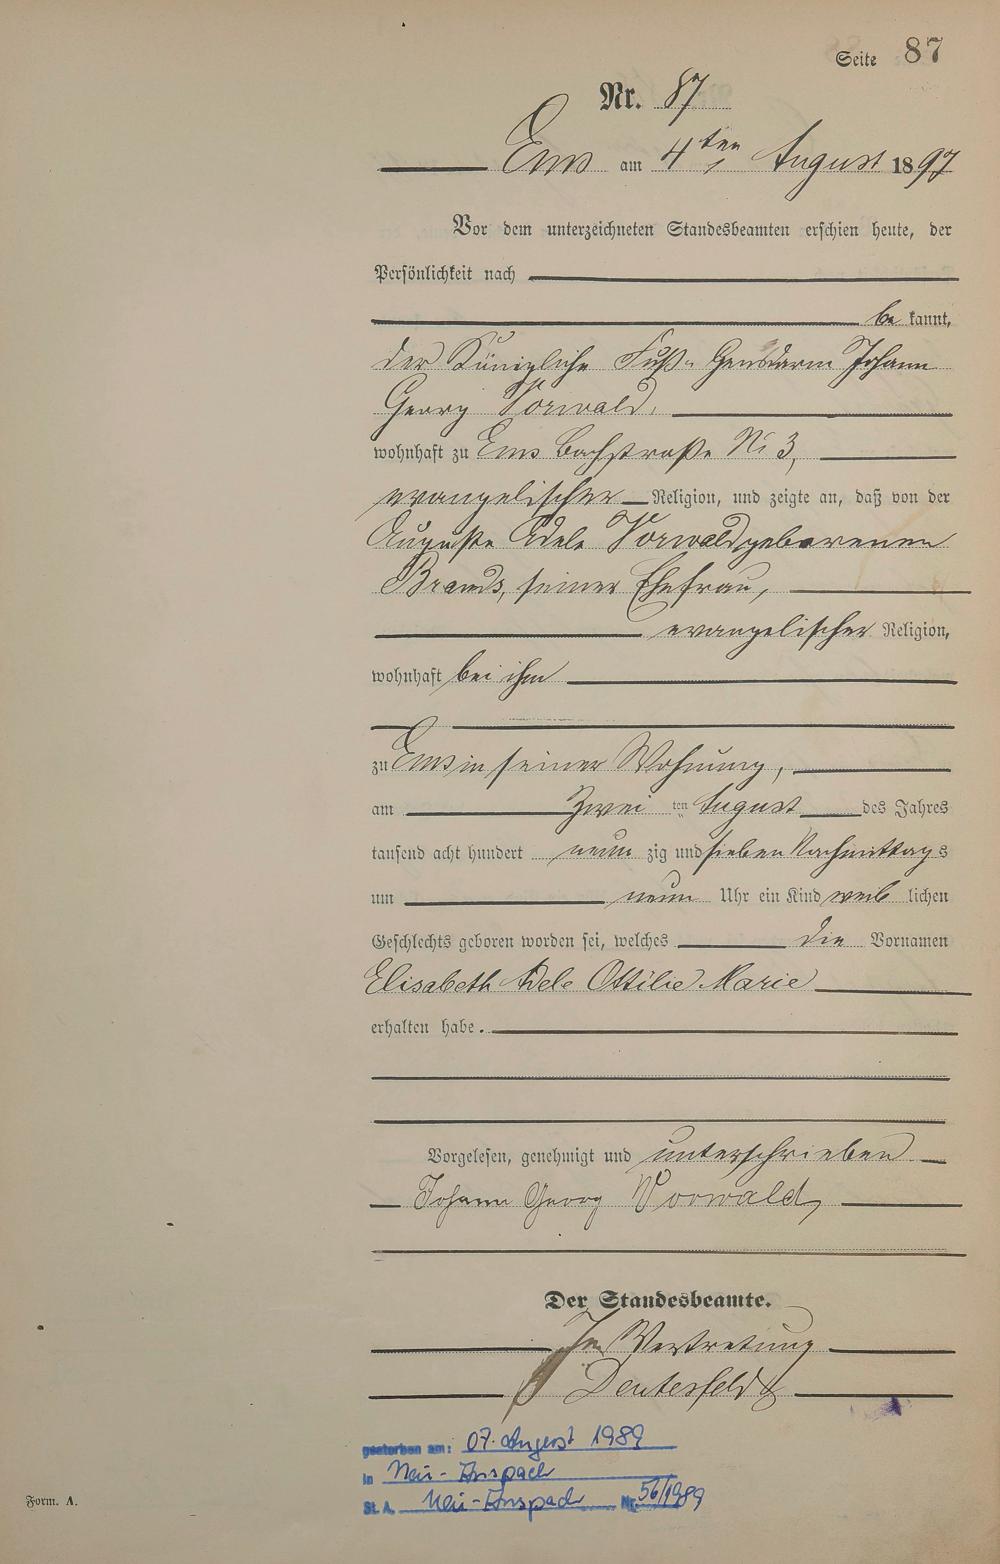 Seite 87
Nr. 87
Ems am 4ten August 1897
Vor dem unterzeichneten Standesbeamten erschien heute, der
Persönlichkeit nach
be kannt,
der Königliche Fuß- Gensdarm Johann
Georg Vorwald,
wohnhaft zu Ems Bachstraße No 3,
evangelischer Religion, und zeigte an, daß von der
Auguste Adele Vorwald geborenen
Brands, seiner Ehefrau,
evangelischer Religion,
wohnhaft bei ihm
zu Ems in seiner Wohnung,
am Zwei ten August des Jahres
tausend acht hundert neun zig und sieben Nachmittags
um neun Uhr ein Kind weib lichen
Geschlechts geboren worden sei, welches die Vornamen
Elisabeth Adele Ottilie Marie
erhalten habe.
Vorgelesen, genehmigt und unterschrieben
Johann Georg Vorwald,
Der Standesbeamte.
In Vertretung
gestorben am: 07. August 1989
in Neu-Anspach
St. A. Neu-Anspach Nr. 56/1989
Form. A.